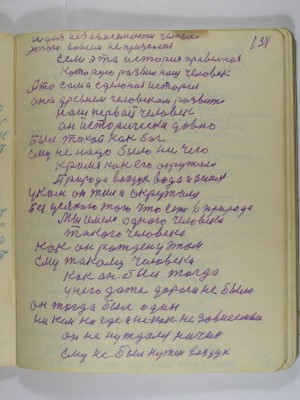 134
и для независимости человек
этого совсем не признает
Если эта история правельная
которую развил наш человек
Это сама сделоная история
она древнем человеком развита
Наш первый человек
он исторически давно
был такой как бог
Ему не надо было ни чего
Кроми как его окружали
Природа воздух вода и земля
он жил и окружало
Без всякого того что есть в природе
Мы имеем одного человека
такого человека
Как он рожден у том
Ему такому человека
Как он был тогда
у него даже дороги не было
он тогда был один
ни кем ни где и не как не зависемо
он не нуждался ничим
ему не был нужен воздух